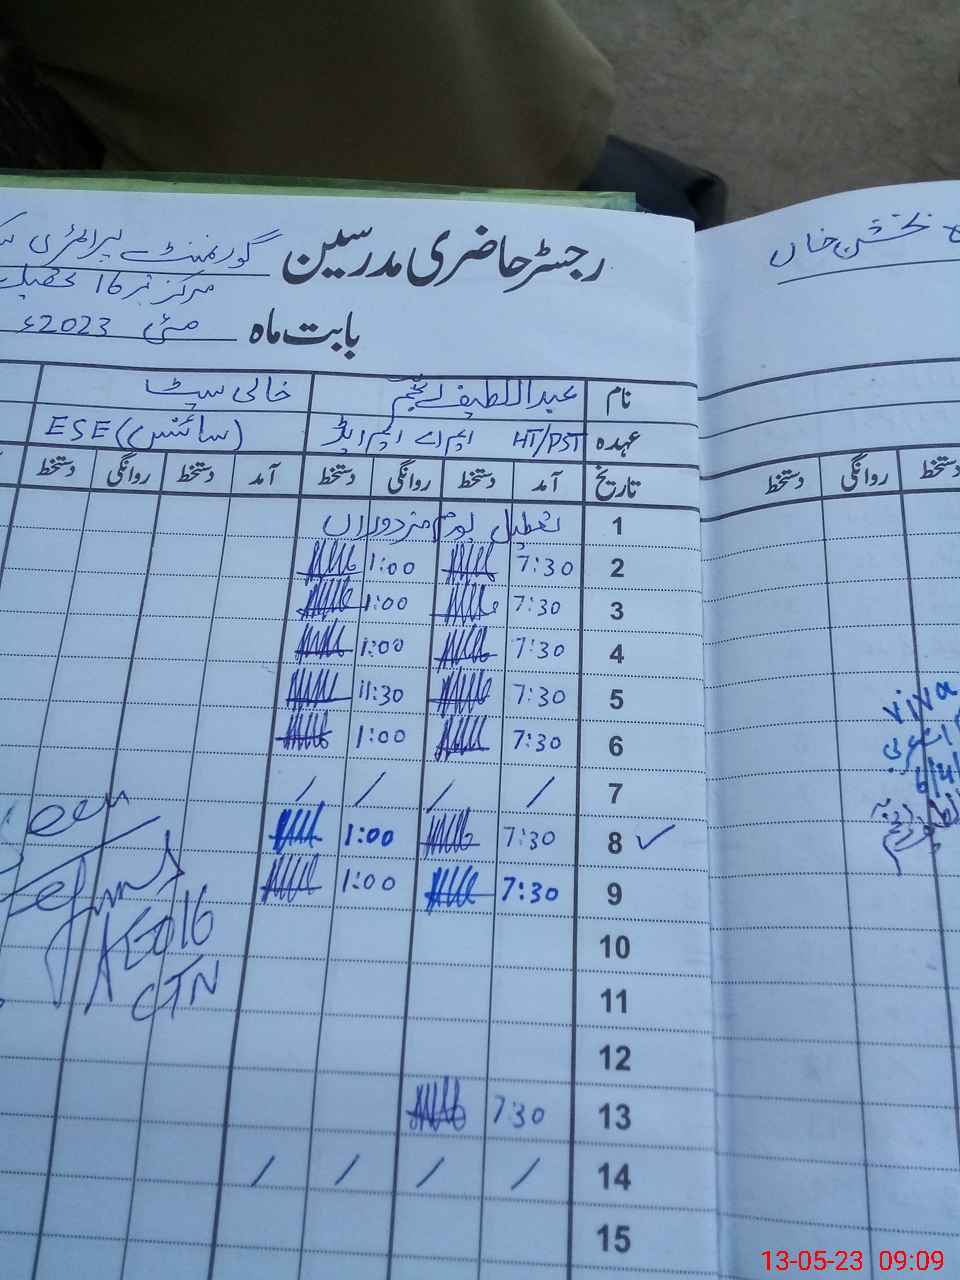 بخشن خاں
رجسٹر حاضری مدرسین گورنمنٹ پرائمری
مرکز نمبر 16 تحصیل
بابت ماہ مئی 2023ء
نام عبداللطیف انجم خالی سیٹ
عہدہ HT/PST ایم اے ایم ایڈ ESE (سائنس)
تاریخ آمد دستخط روانگی دستخط آمد دستخط روانگی دستخط
دستخط روانگی دستخط
1 تعطیل یوم مزدوراں
2 7:30 1:00
3 7:30 1:00
4 7:30 1:00
5 7:30 11:30
6 7:30 1:00
7 / / / /
8 ✓ 7:30 1:00
9 7:30 1:00
10
11
12
13 7:30
14 / / / /
15
Seen
AEO 16
CTN
viva
13-05-23 09:09